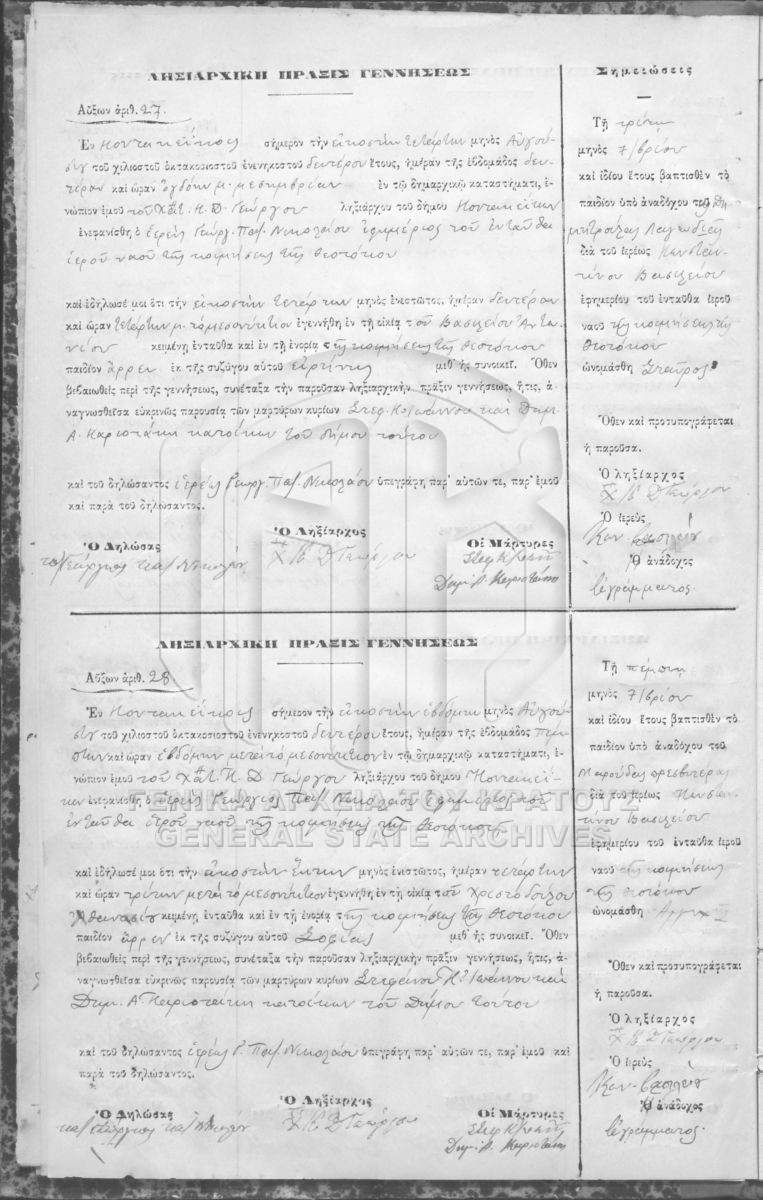 ΛΗΞΙΑΡΧΙΚΗ ΠΡΑΞΙΣ ΓΕΝΝΗΣΕΩΣ
Αὔξων ἀριθ. 27.
Ἐν σήμερον τὴν εἰκοστὴν τετάρτην μηνὸς Αὐγού-
στου τοῦ χιλιοστοῦ ὀκτακοσιοστοῦ ἐνενηκοστοῦ δευτέρου ἔτους, ἡμέραν τῆς ἑβδομάδος δευ-
τέραν καὶ ὥραν ὀγδόην μ. μεσημβρίαν ἐν τῷ δημαρχικῷ καταστήματι, ἐ-
νώπιον ἐμοῦ τοῦ Δ. Γεώργου ληξιάρχου τοῦ δήμου
ἐνεφανίσθη ὁ ἱερεὺς Γεώργ. Παπ. Νικολάου ἐφημέριος τοῦ ἐνταῦθα
ἱεροῦ ναοῦ τῆς κοιμήσεως τῆς Θεοτόκου
καὶ ἐδήλωσέ μοι ὅτι τὴν εἰκοστὴν τετάρτην μηνὸς ἐνεστῶτος, ἡμέραν δευτέραν
καὶ ὥραν τετάρτην μ. τὸ μεσονύκτιον ἐγεννήθη ἐν τῇ οἰκίᾳ τοῦ Βασιλείου Ἀντω-
νίου κειμένῃ ἐνταῦθα καὶ ἐν τῇ ἐνορίᾳ τῆς κοιμήσεως τῆς Θεοτόκου
παιδίον ἄρρεν ἐκ τῆς συζύγου αὐτοῦ Εἰρήνης μεθ' ἧς συνοικεῖ. Ὅθεν
βεβαιωθεὶς περὶ τῆς γεννήσεως, συνέταξα τὴν παροῦσαν ληξιαρχικὴν πρᾶξιν γεννήσεως, ἥτις, ἀ-
ναγνωσθεῖσα εὐκρινῶς παρουσίᾳ τῶν μαρτύρων κυρίων Στεφ. Κ. Ἰωάννου καὶ Δημ.
Α. Καριοτάκη κατοίκων τοῦ δήμου τούτου
καὶ τοῦ δηλώσαντος ἱερέως Γεωργ. Παπ. Νικολάου ὑπεγράφη παρ' αὐτῶν τε, παρ' ἐμοῦ
καὶ παρὰ τοῦ δηλώσαντος.
Ὁ Δηλώσας
Ὁ Ληξίαρχος
Οἱ Μάρτυρες
Σημειώσεις
Τῇ τρίτῃ
μηνὸς 7/βρίου
καὶ ἰδίου ἔτους βαπτισθὲν τὸ
παιδίον ὑπὸ ἀναδόχου τοῦ
διὰ τοῦ ἱερέως Κωνσταν-
τίνου Βασιλείου
ἐφημερίου τοῦ ἐνταῦθα ἱεροῦ
ναοῦ τῆς κοιμήσεως τῆς
Θεοτόκου
ὠνομάσθη Σταῦρος
Ὅθεν καὶ προσυπογράφεται
ἡ παροῦσα.
Ὁ ληξίαρχος
Ὁ ἱερεὺς
Ὁ ἀνάδοχος
ἀγράμματος.
ΛΗΞΙΑΡΧΙΚΗ ΠΡΑΞΙΣ ΓΕΝΝΗΣΕΩΣ
Αὔξων ἀριθ. 28.
Ἐν σήμερον τὴν εἰκοστὴν ἑβδόμην μηνὸς Αὐγού-
στου τοῦ χιλιοστοῦ ὀκτακοσιοστοῦ ἐνενηκοστοῦ δευτέρου ἔτους, ἡμέραν τῆς ἑβδομάδος πέμ-
πτην καὶ ὥραν ἑβδόμην μετὰ τὸ μεσονύκτιον ἐν τῷ δημαρχικῷ καταστήματι, ἐ-
νώπιον ἐμοῦ τοῦ Δ Γεώργου ληξιάρχου τοῦ δήμου
ἐνεφανίσθη ὁ ἱερεὺς Γεώργιος Παπ. Νικολάου ἐφημέριος τοῦ
ἐνταῦθα ἱεροῦ ναοῦ τῆς κοιμήσεως τῆς Θεοτόκου
ΓΕΝΙΚΑ ΑΡΧΕΙΑ ΤΟΥ ΚΡΑΤΟΥΣ
GENERAL STATE ARCHIVES
καὶ ἐδήλωσέ μοι ὅτι τὴν εἰκοστὴν ἕκτην μηνὸς ἐνεστῶτος, ἡμέραν τετάρτην
καὶ ὥραν τρίτην μετὰ τὸ μεσονύκτιον ἐγεννήθη ἐν τῇ οἰκίᾳ τοῦ Χριστοδούλου
Ἀθανασίου κειμένῃ ἐνταῦθα καὶ ἐν τῇ ἐνορίᾳ τῆς κοιμήσεως τῆς Θεοτόκου
παιδίον ἄρρεν ἐκ τῆς συζύγου αὐτοῦ Σοφίας μεθ' ἧς συνοικεῖ. Ὅθεν
βεβαιωθεὶς περὶ τῆς γεννήσεως, συνέταξα τὴν παροῦσαν ληξιαρχικὴν πρᾶξιν γεννήσεως, ἥτις, ἀ-
ναγνωσθεῖσα εὐκρινῶς παρουσίᾳ τῶν μαρτύρων κυρίων Στεφάνου Κ. Ἰωάννου καὶ
Δημ. Α. Καριοτάκη κατοίκων τοῦ Δήμου τούτου
καὶ τοῦ δηλώσαντος ἱερέως Γ. Παπ. Νικολάου ὑπεγράφη παρ' αὐτῶν τε, παρ' ἐμοῦ καὶ
παρὰ τοῦ δηλώσαντος.
Ὁ Δηλώσας
Ὁ Ληξίαρχος
Οἱ Μάρτυρες
Τῇ πέμπτῃ
μηνὸς 7/βρίου
καὶ ἰδίου ἔτους βαπτισθὲν τὸ
παιδίον ὑπὸ ἀναδόχου τοῦ
Μαρούδας πρεσβυτέρας
διὰ τοῦ ἱερέως Κωνσταν-
τίνου Βασιλείου
ἐφημερίου τοῦ ἐνταῦθα ἱεροῦ
ναοῦ τῆς κοιμήσεως
τῆς Θεοτόκου
ὠνομάσθη
Ὅθεν καὶ προσυπογράφεται
ἡ παροῦσα.
Ὁ ληξίαρχος
Ὁ ἱερεὺς
Ὁ ἀνάδοχος
ἀγράμματος.